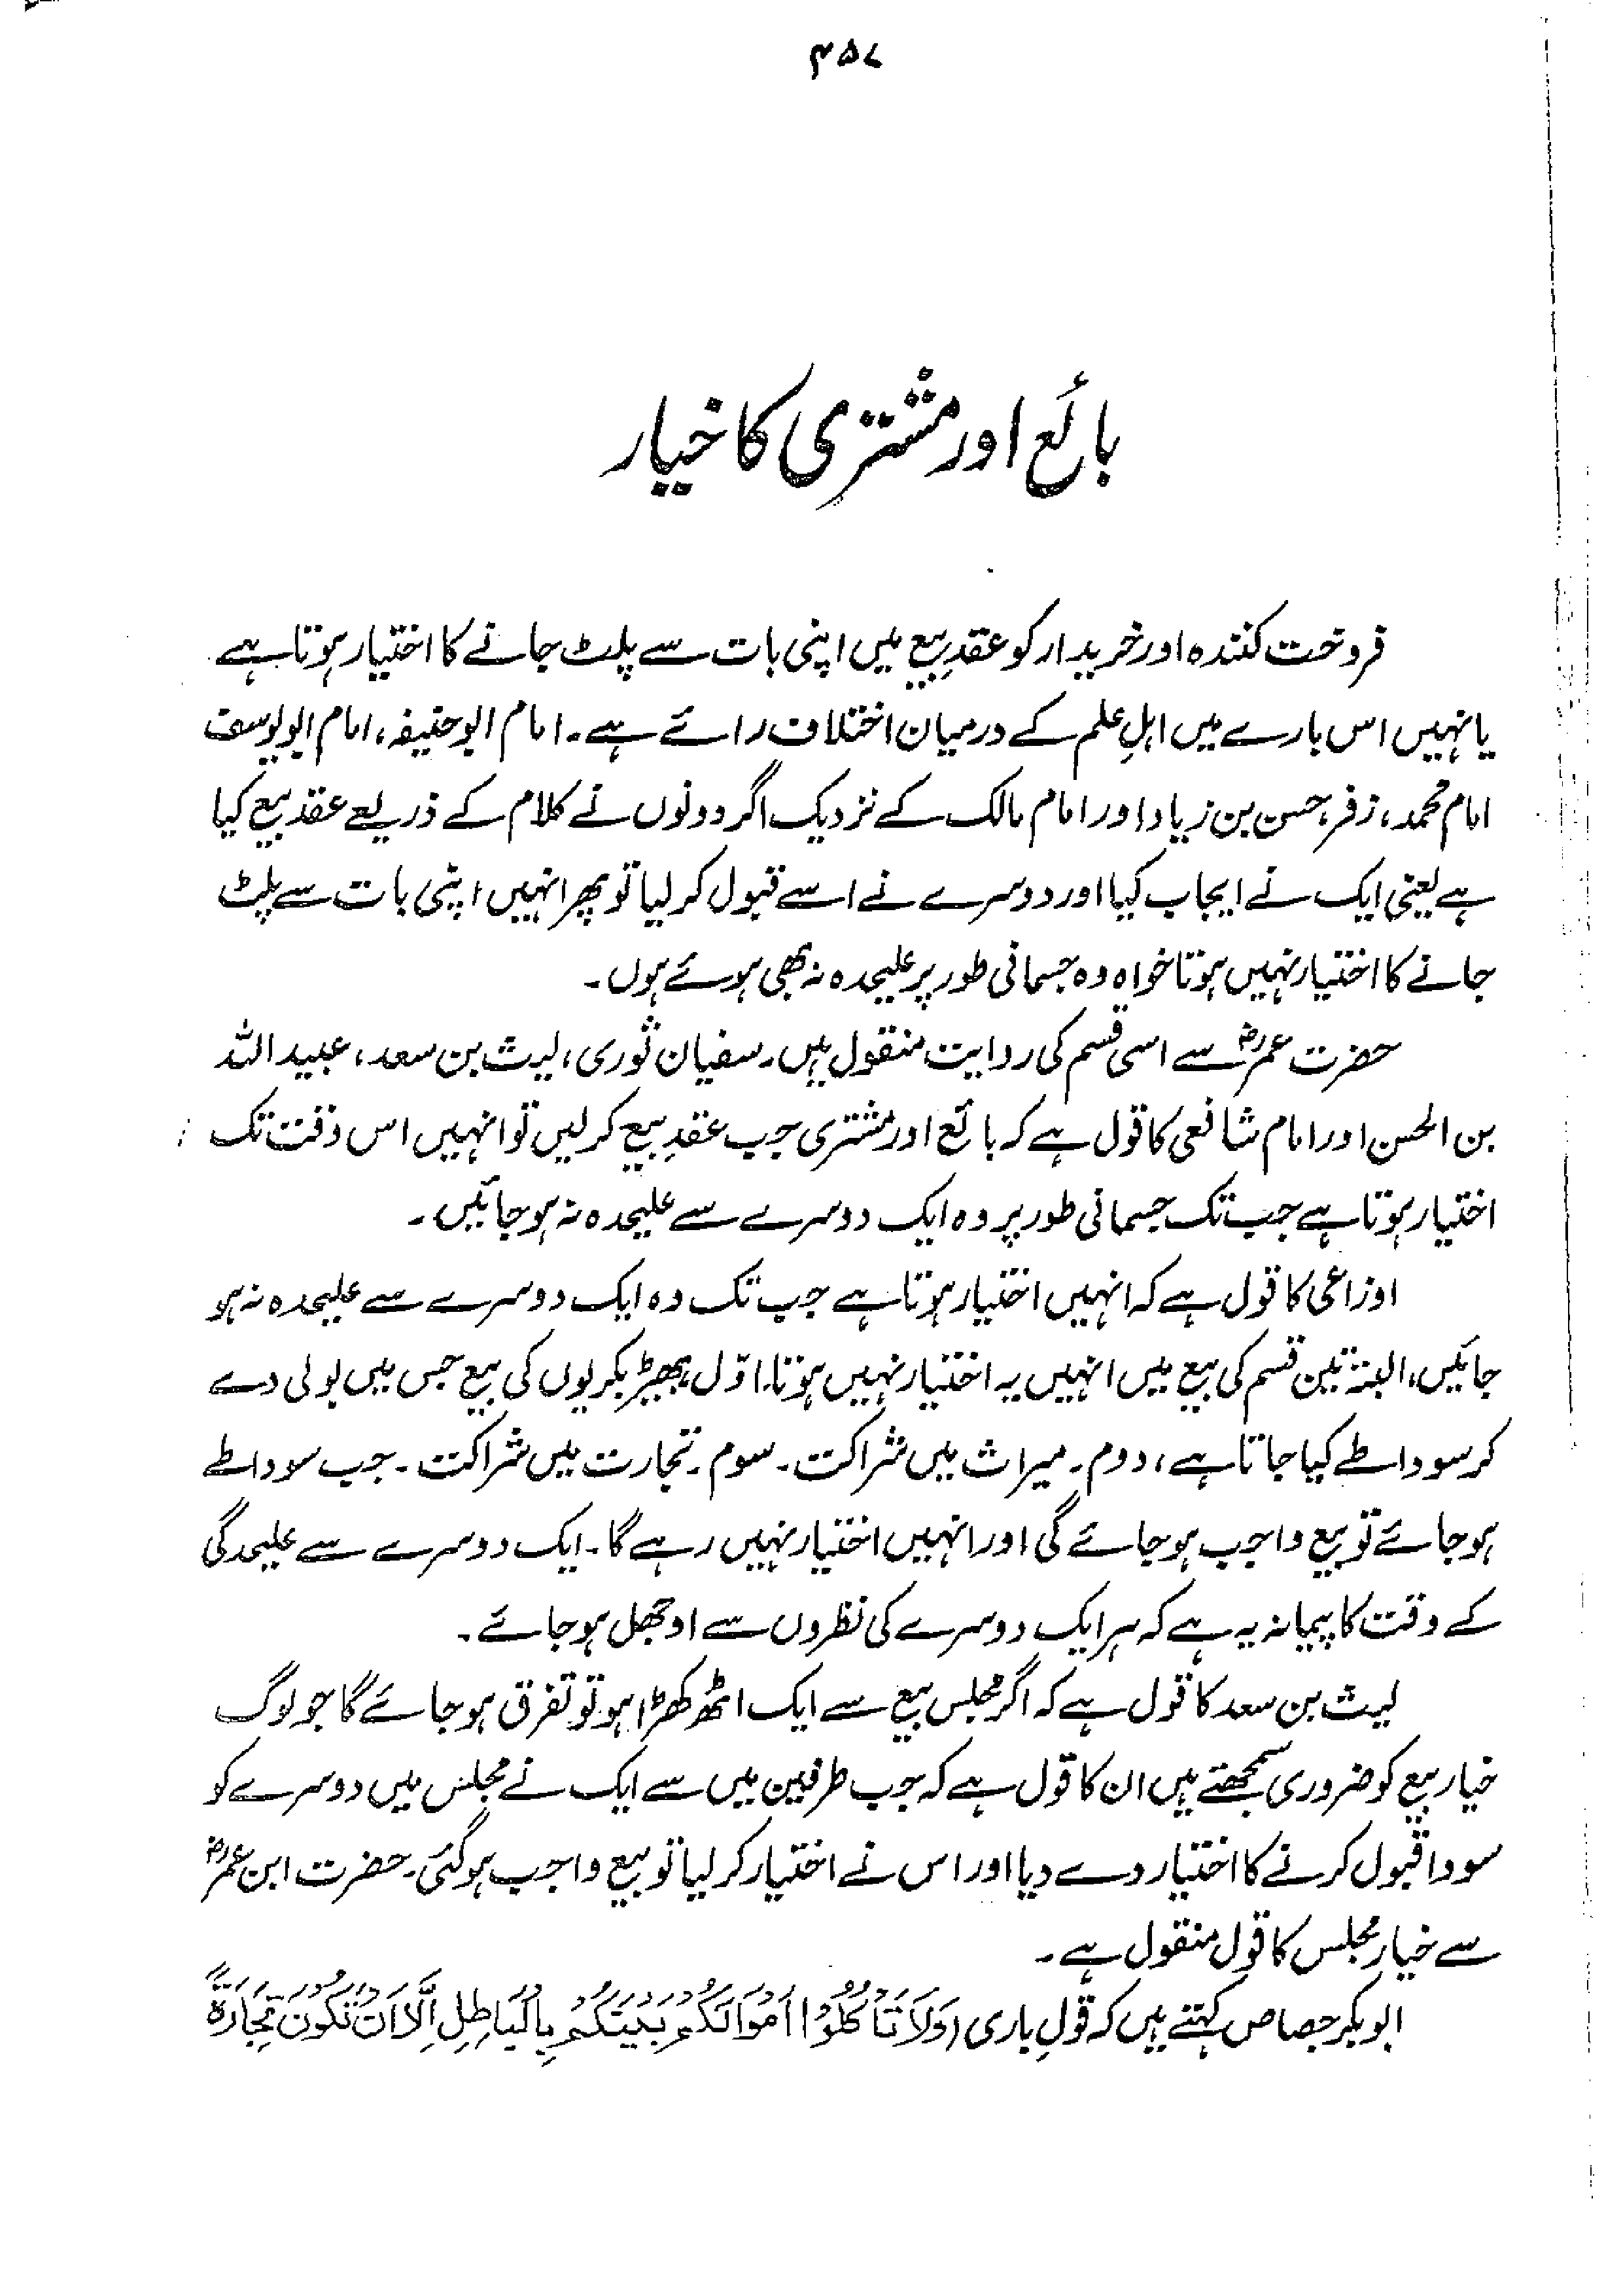 ۴۵۷
بائع اور مشتری کا خیار
فروخت کنندہ اور خریدار کو عقدِ بیع میں اپنی بات سے پلٹ جانے کا اختیار ہوتا ہے
یا نہیں اس بارے میں اہلِ علم کے درمیان اختلاف رائے ہے۔ امام ابوحنیفہ، امام ابویوسف
امام محمد، زفر، حسن بن زیاد اور امام مالک کے نزدیک اگر دونوں نے کلام کے ذریعے عقد بیع کیا
ہے یعنی ایک نے ایجاب کیا اور دوسرے نے اسے قبول کر لیا تو پھر انہیں اپنی بات سے پلٹ
جانے کا اختیار نہیں ہوتا خواہ وہ جسمانی طور پر علیحدہ نہ بھی ہوئے ہوں۔
حضرت عمرؓ سے اسی قسم کی روایت منقول ہیں۔ سفیان ثوری، لیث بن سعد، عبید اللہ
بن الحسن اور امام شافعی کا قول ہے کہ بائع اور مشتری جب عقدِ بیع کر لیں تو انہیں اس وقت تک
اختیار ہوتا ہے جب تک جسمانی طور پر وہ ایک دوسرے سے علیحدہ نہ ہو جائیں۔
اوزاعی کا قول ہے کہ انہیں اختیار ہوتا ہے جب تک وہ ایک دوسرے سے علیحدہ نہ ہو
جائیں، البتہ تین قسم کی بیع میں انہیں یہ اختیار نہیں ہوتا۔ اوّل بھیڑ بکریوں کی بیع جس میں بولی دے
کر سودا طے کیا جاتا ہے، دوم۔ میراث میں شراکت۔ سوم۔ تجارت میں شراکت۔ جب سودا طے
ہو جائے تو بیع واجب ہو جائے گی اور انہیں اختیار نہیں رہے گا۔ ایک دوسرے سے علیحدگی
کے وقت کا پیمانہ یہ ہے کہ ہر ایک دوسرے کی نظروں سے اوجھل ہو جائے۔
لیث بن سعد کا قول ہے کہ اگر مجلس بیع سے ایک اٹھ کھڑا ہو تو تفرق ہو جائے گا جو لوگ
خیار بیع کو ضروری سمجھتے ہیں ان کا قول ہے کہ جب طرفین میں سے ایک نے مجلس میں دوسرے کو
سودا قبول کرنے کا اختیار دے دیا اور اس نے اختیار کر لیا تو بیع واجب ہو گئی۔ حضرت ابن عمرؓ
سے خیارِ مجلس کا قول منقول ہے۔
ابوبکر جصاص کہتے ہیں کہ قولِ باری (وَلَا تَأْكُلُوْا اَمْوَالَكُمْ بَيْنَكُمْ بِالْبَاطِلِ اِلَّا اَنْ تَكُوْنَ تِجَارَةً